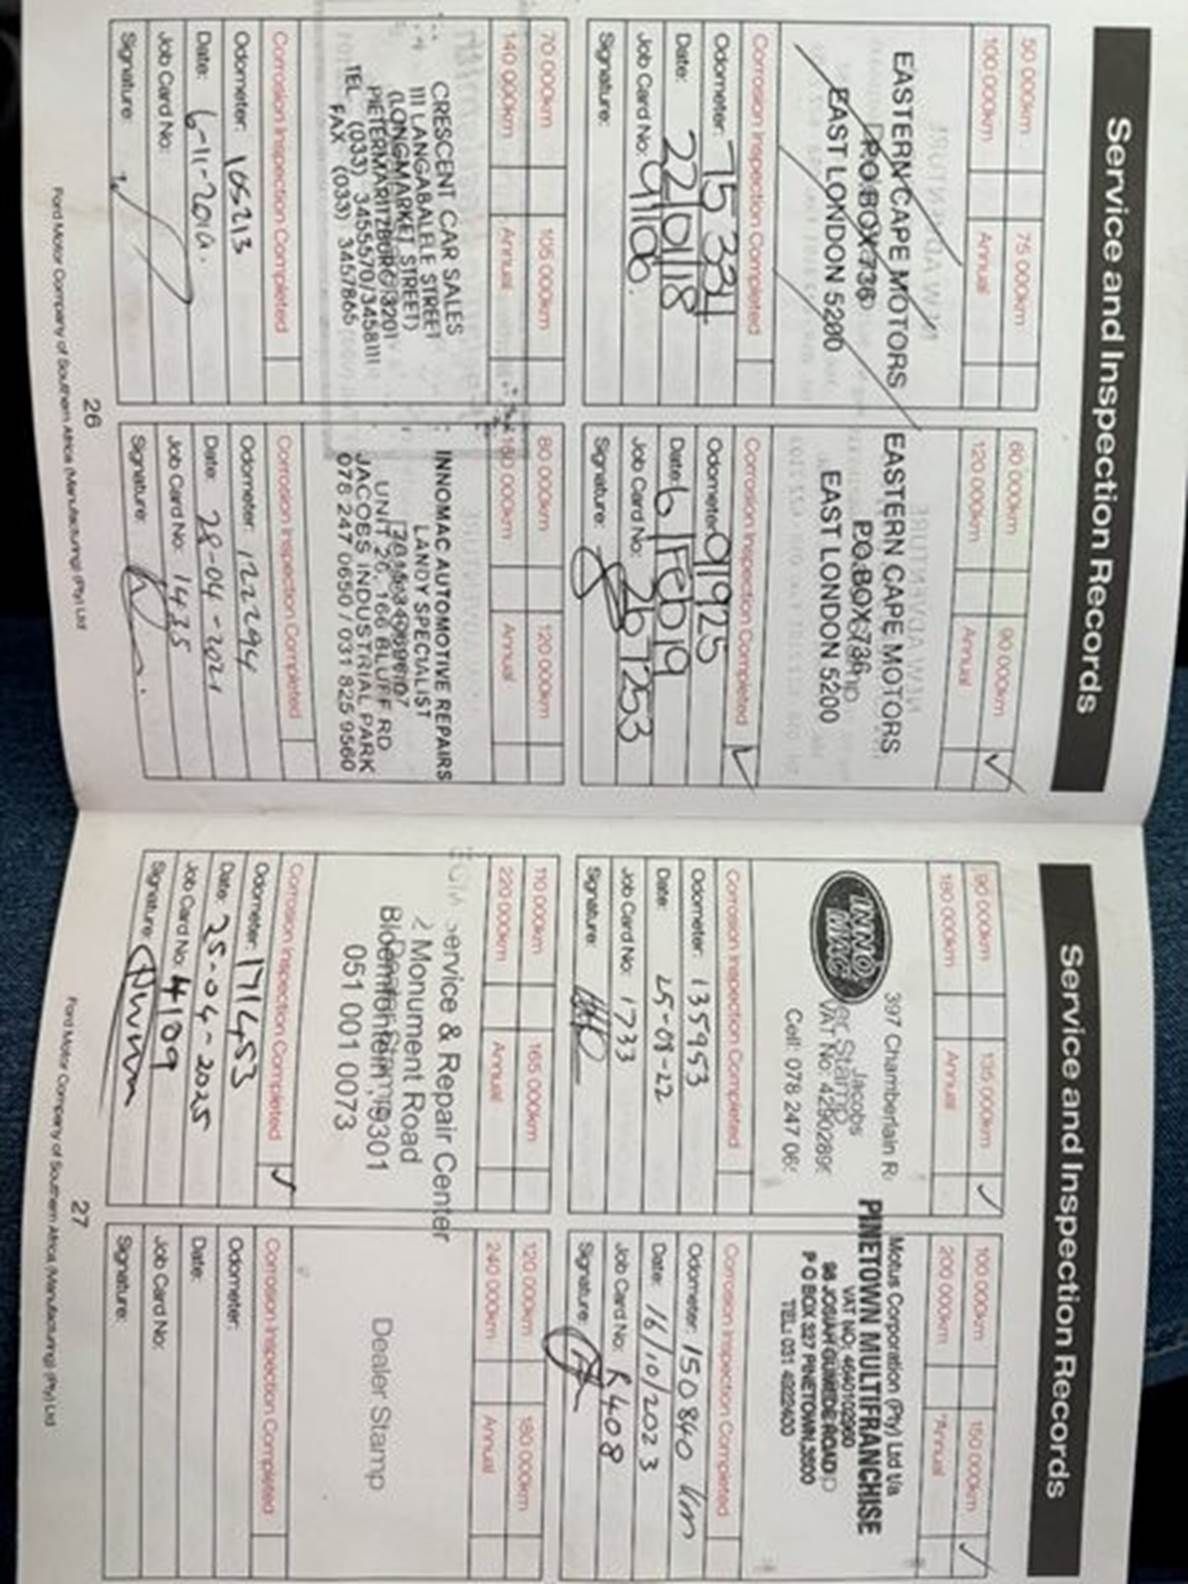 Service and Inspection Records
50 000km
75 000km
100 000km
Annual
EASTERN CAPE MOTORS
P.O BOX 736
EAST LONDON 5200
Corrosion Inspection Completed
Odometer: 75331
Date: 22/01/18
Job Card No: 91106
Signature:
60 000km
90 000km
120 000km
Annual
EASTERN CAPE MOTORS
P.O. BOX 736
EAST LONDON 5200
Corrosion Inspection Completed
Odometer: 91925
Date: 6/Feb/19
Job Card No: 267253
Signature:
70 000km
105 000km
140 000km
Annual
CRESCENT CAR SALES
111 LANGABALELE STREET
(LONGMARKET STREET)
PIETERMARITZBURG 3201
TEL (033) 3455570/3458111
FAX (033) 3457865
Corrosion Inspection Completed
Odometer: 105213
Date: 6-11-2019.
Job Card No:
Signature:
80 000km
120 000km
160 000km
Annual
INNOMAC AUTOMOTIVE REPAIRS
LANDY SPECIALIST
UNIT 26, 166 BLUFF RD
JACOBS INDUSTRIAL PARK
078 247 0650 / 031 825 9560
Corrosion Inspection Completed
Odometer: 122294
Date: 28-04-2021
Job Card No: 1435
Signature:
26
Ford Motor Company of Southern Africa (Manufacturing) (Pty) Ltd
Service and Inspection Records
90 000km
135 000km
180 000km
Annual
INNO
MAC
397 Chamberlain R
Jacobs
er Stamp
VAT No: 4290289
Cell: 078 247 06
Corrosion Inspection Completed
Odometer: 135953
Date: 25-08-22
Job Card No: 1733
Signature:
100 000km
150 000km
200 000km
Annual
Motus Corporation (Pty) Ltd t/a
PINETOWN MULTIFRANCHISE
VAT NO: 4640102960
98 JOSIAH GUMEDE ROAD
P O BOX 327 PINETOWN, 3600
TEL: 031
Corrosion Inspection Completed
Odometer: 150840 km
Date: 16/10/2023
Job Card No: R408
Signature:
110 000km
165 000km
220 000km
Annual
service & Repair Center
2 Monument Road
Bloemfontein, 9301
051 001 0073
Corrosion Inspection Completed
Odometer: 171453
Date: 25-04-2025
Job Card No: 4109
Signature:
120 000km
180 000km
240 000km
Annual
Dealer Stamp
Corrosion Inspection Completed
Odometer:
Date:
Job Card No:
Signature:
27
Ford Motor Company of Southern Africa (Manufacturing) (Pty) Ltd